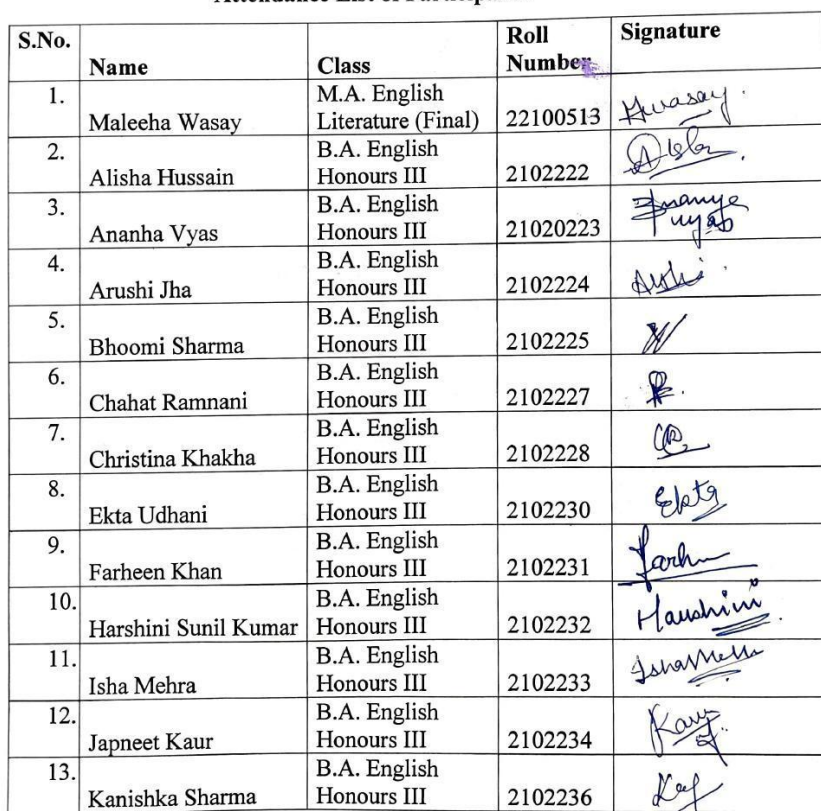 S.No. Name Class Roll Number Signature
1. Maleeha Wasay M.A. English Literature (Final) 22100513
2. Alisha Hussain B.A. English Honours III 2102222
3. Ananha Vyas B.A. English Honours III 21020223
4. Arushi Jha B.A. English Honours III 2102224
5. Bhoomi Sharma B.A. English Honours III 2102225
6. Chahat Ramnani B.A. English Honours III 2102227
7. Christina Khakha B.A. English Honours III 2102228
8. Ekta Udhani B.A. English Honours III 2102230 Ekta
9. Farheen Khan B.A. English Honours III 2102231
10. Harshini Sunil Kumar B.A. English Honours III 2102232
11. Isha Mehra B.A. English Honours III 2102233
12. Japneet Kaur B.A. English Honours III 2102234
13. Kanishka Sharma B.A. English Honours III 2102236